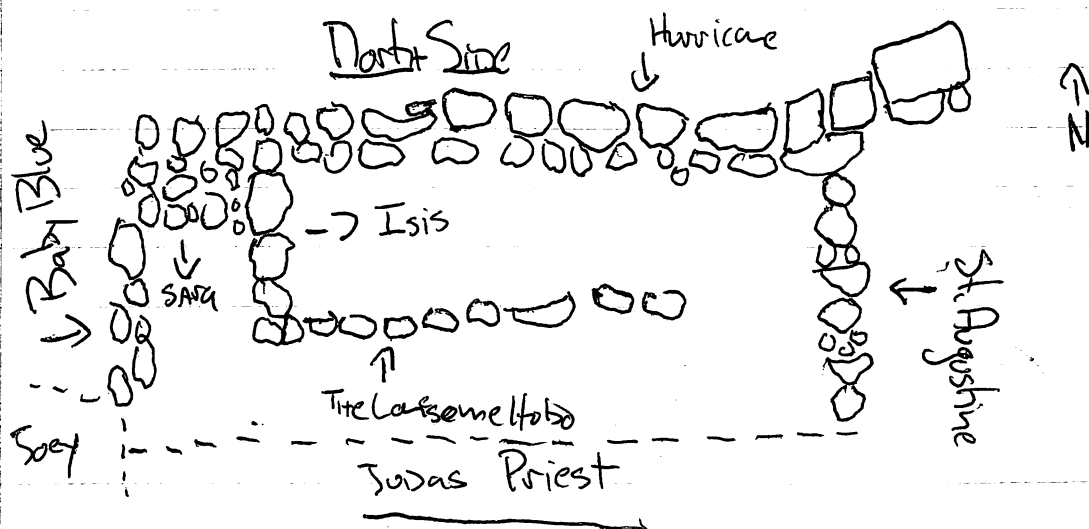 North Side
Hurricane
N
Baby Blue
Isis
SARA
St. Augustine
THe Lonesome Hobo
Joey
JUDAS Priest